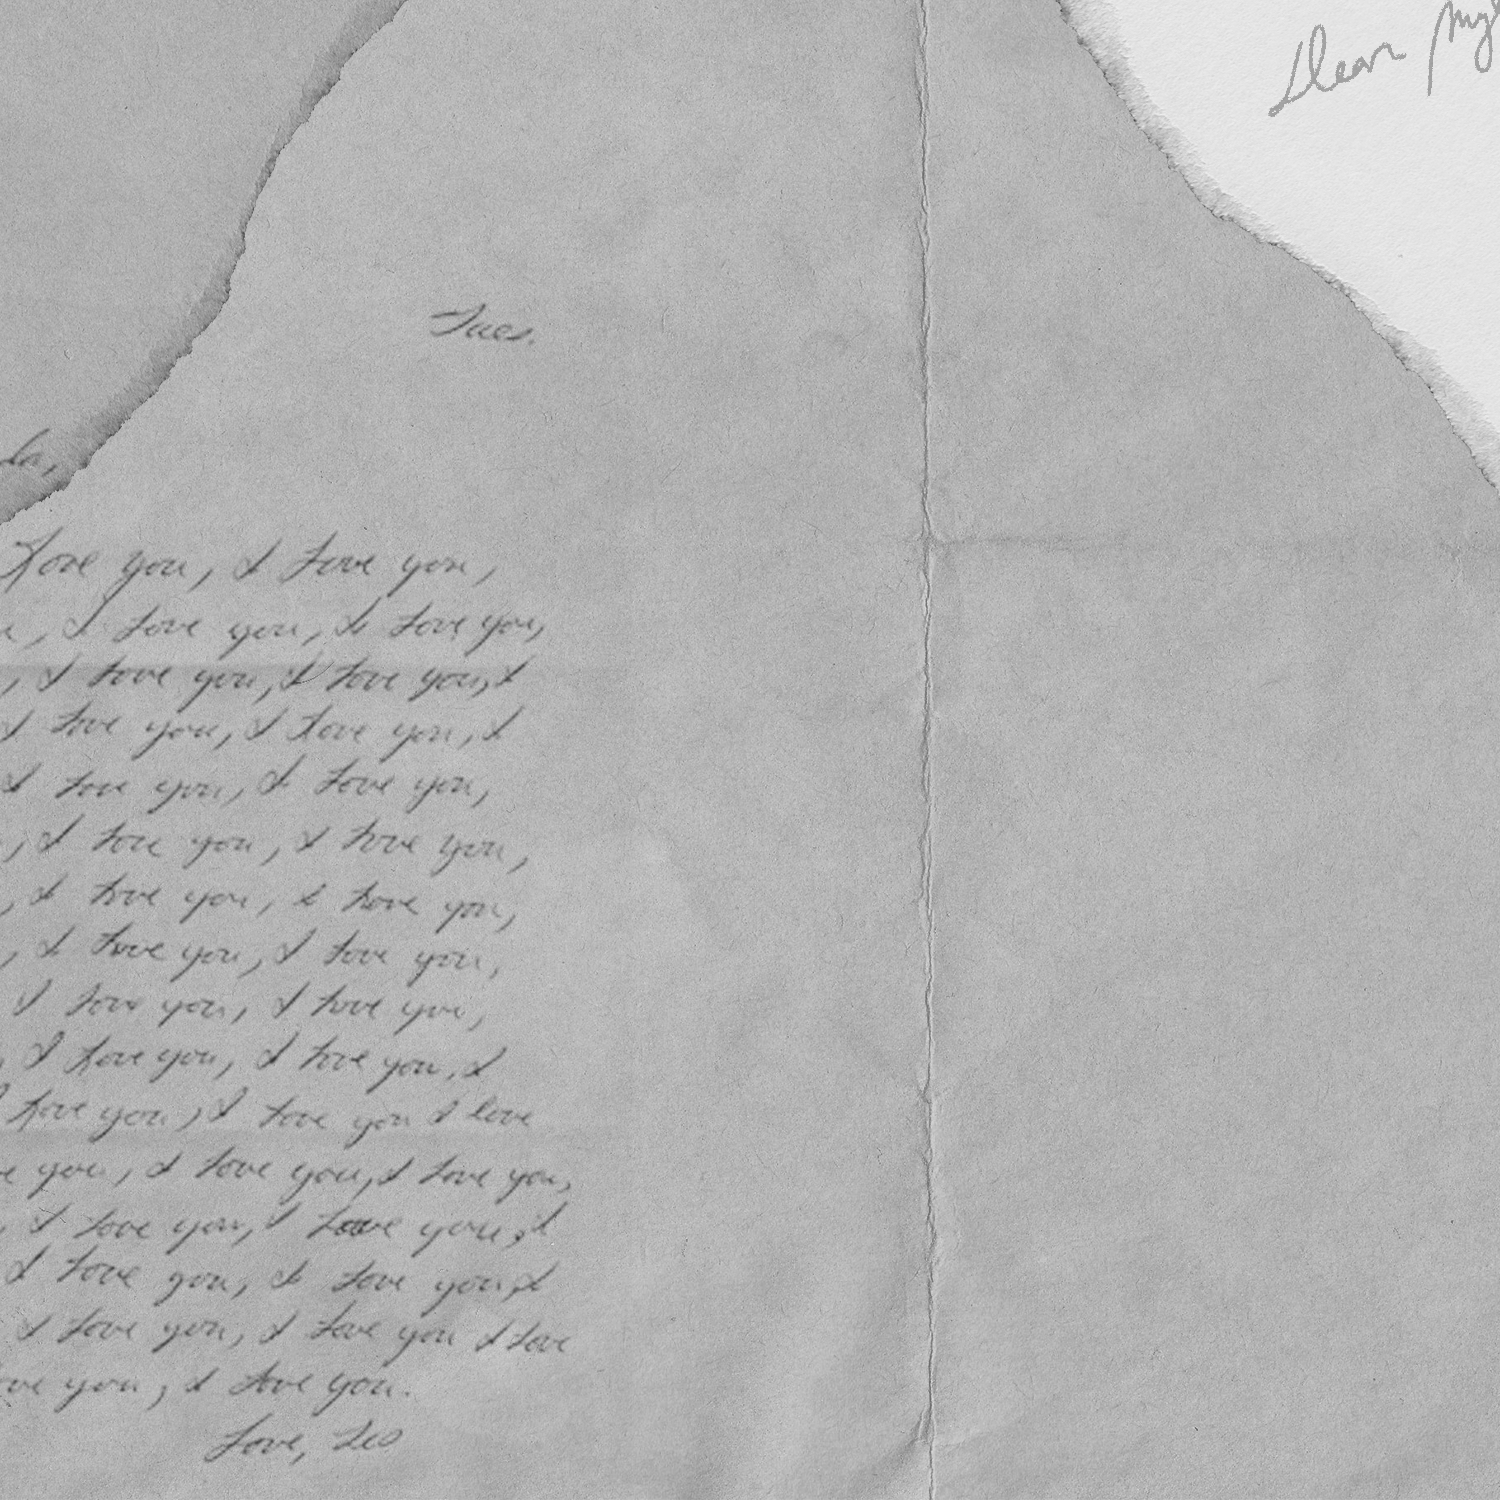 Dear My
Tues.
la,
Love you, I love you,
u, I love you, I love you,
, I love you, I love you, I
I love you, I love you, I
I love you, I love you,
, I love you, I love you,
, I love you, I love you,
, I love you, I love you,
I love you, I love you,
, I love you, I love you, I
love you, I love you I love
e you, I love you, I love you,
, I love you, I love you, I
I love you, I love you, I
I love you, I love you I love
ove you, I love you.
Love, Leo